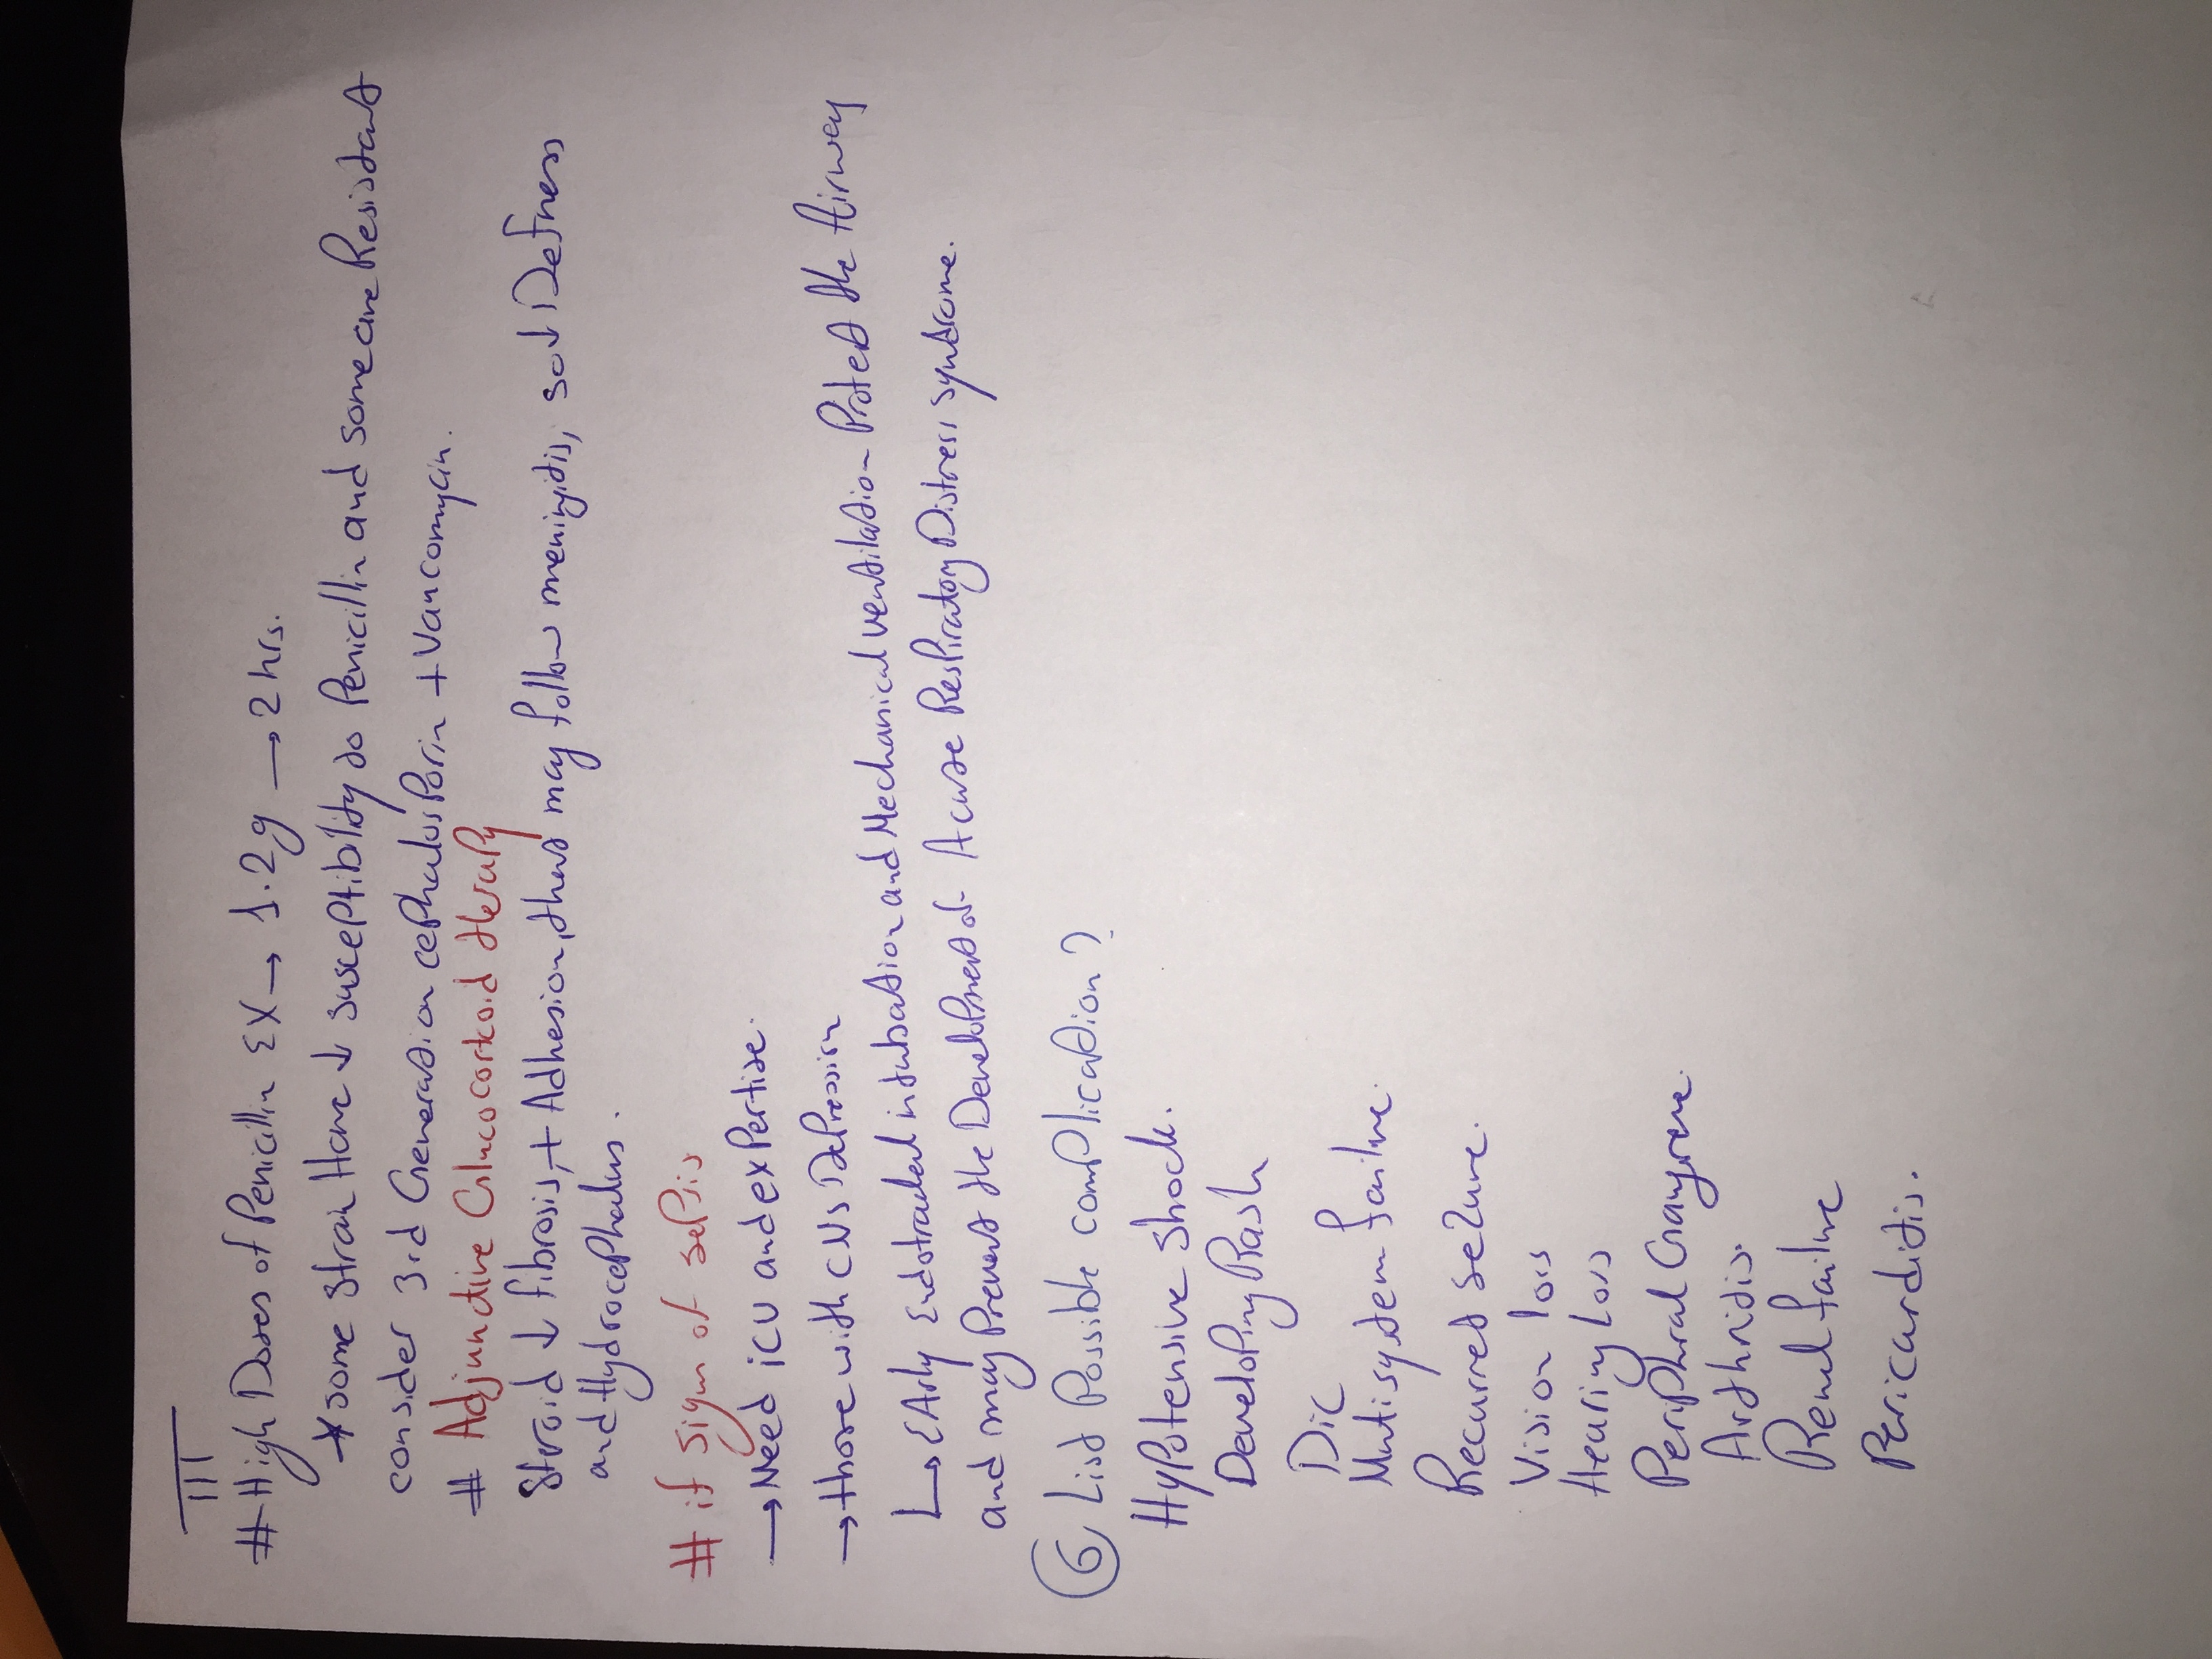 III
# High Doses of Penicillin EX → 1.2g → 2hrs.
* some strain Have ↓ susceptibility to Penicillin and some are Resistant
consider 3rd Generation cephalosPorin + Vancomycin.
# Adjunctive Glucocortcoid therapy
Steroid ↓ fibrosis, + Adhesion, that may follow meningitis, so ↓ Defness
and Hydrocephalus.
# if sign of sepsis
→ Need icu and exPertise.
→ those with CNS DePression
↳ EArly Endotracheal intubation and Mechanical ventilation Protect the Airway
and may Prevent the DeveloPment of Acute ResPiratory Distress syndrome.
⑥ List Possible comPlication?
HyPotensive shock.
DeveloPing Rash
Dic
Mutisystem failure.
Recurret seZure.
Vision loss
Hearing Loss
PeriPhral Gangrene.
Arthritis.
Renal failure
Pericarditis.